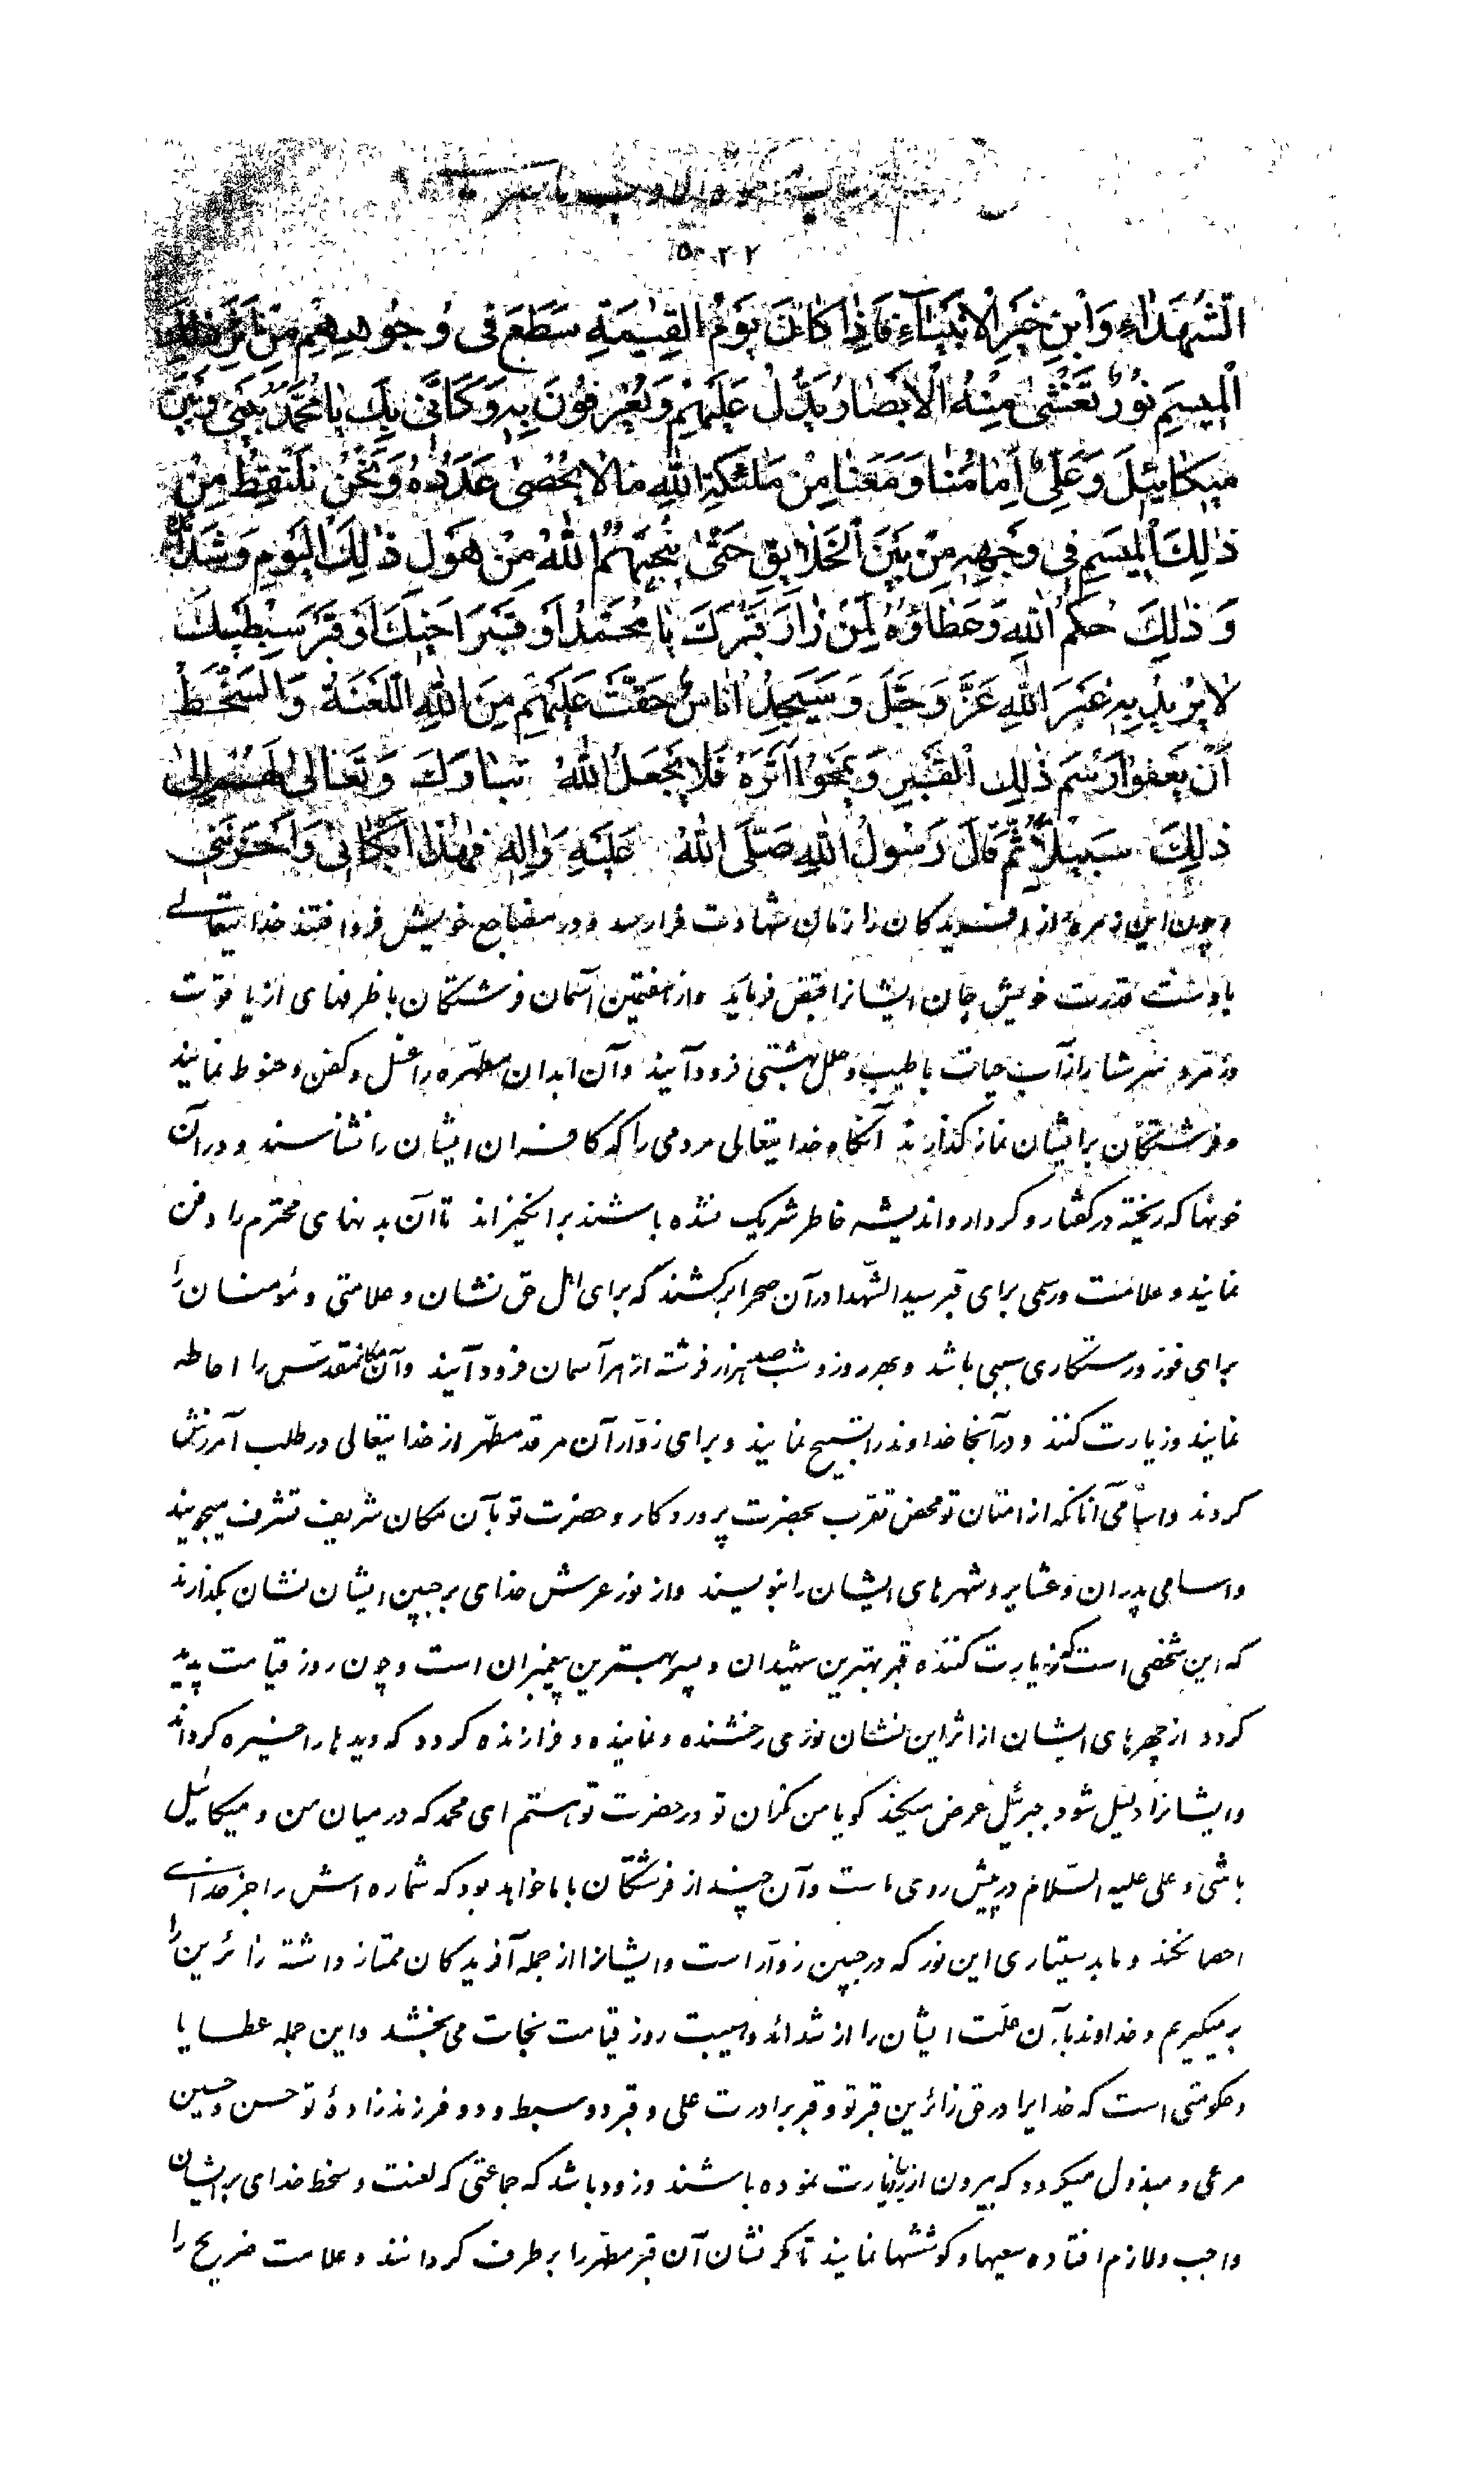 ۵۰۲۰۲
الشُّهَدٰاءِ وَابْنِ خَیْرِالْاَنْبِیٰاءِ فَاِذٰا کٰانَ یَوْمُ الْقِیٰمَةِ سَطَعَ فی وُجُوهِهِمْ مِنْ اَثَرِ ذٰلِكَ
الْمیسَمِ نُورٌ تَغْشیٰ مِنْهُ الْاَبْصٰارُ یَدُلُّ عَلَیْهِمْ وَیُعْرَفُونَ بِهِ وَکَاَنّی بِكَ یٰا مُحَمَّدُ بَیْنی وَبَیْنَ
میکٰائیلَ وَعَلِیٌّ اَمٰامُنٰا وَمَعَنٰا مِنْ مَلٰئِکَةِ اللّٰهِ مٰا لٰا یُحْصیٰ عَدَدُهُ وَنَحْنُ نَلْتَقِطُ مِنْ
ذٰلِكَ الْمیسَمِ فی وَجْهِهِ مِنْ بَیْنِ الْخَلٰایِقِ حَتّیٰ یُنْجِیَهُمُ اللّٰهُ مِنْ هَوْلِ ذٰلِكَ الْیَوْمِ وَشَدٰائِدِهِ
وَذٰلِكَ حُکْمُ اللّٰهِ وَعَطٰاؤُهُ لِمَنْ زٰارَ قَبْرَكَ یٰا مُحَمَّدُ اَوْ قَبْرَ اَخیكَ اَوْ قَبْرَ سِبْطَیْكَ
لٰا یُریدُ بِهِ غَیْرَ اللّٰهِ عَزَّ وَجَلَّ وَسَیَجِدُ اُنٰاسٌ حَقَّتْ عَلَیْهِمْ مِنَ اللّٰهِ اللَّعْنَةُ وَالسَّخَطُ
اَنْ یَعْفُوا رَسْمَ ذٰلِكَ الْقَبْرِ وَیَمْحُوا اَثَرَهُ فَلٰا یَجْعَلُ اللّٰهُ تَبٰارَكَ وَتَعٰالیٰ لَهُمْ اِلیٰ
ذٰلِكَ سَبیلًا ثُمَّ قٰالَ رَسُولُ اللّٰهِ صَلَّی اللّٰهُ عَلَیْهِ وَاٰلِهِ فَهٰذٰا اَبْکٰانی وَاَحْزَنَنی
و چون این زمره از آفریدکان را زمان شهادت فرارسد و در مضاجع خویش فرو افتند خدایتعالی
با دست قدرت خویش جان ایشانرا قبض فرماید و از هفتمین آسمان فرشتکان با ظرفهای از یاقوت
و زمرد سرشار از آب حیات با طیب و حلل بهشتی فرود آیند و آن ابدان مطهّره را غسل و کفن و حنوط نمایند
و فرشتکان بر ایشان نماز کذارند آنکاه خدایتعالی مردمی را که کافران ایشان را نشناسند و در آن
خونها که ریخته در کفتار و کردار و اندیشه خاطر شریک نشده باشند برانکیزاند تا آن بدنهای محترم را دفن
نمایند و علامت و رسمی برای قبر سید الشّهدا در آن صحرا برکشند که برای اهل حق نشان و علامتی و مؤمنان را
برای فوز و رستکاری سببی باشد و بهر روز و شب صد هزار فرشته از هر آسمان فرود آیند و آن مکان مقدّس را احاطه
نمایند و زیارت کنند و در آنجا خداوند را تسبیح نمایند و برای زوّار آن مرقد مطهّر از خدایتعالی در طلب آمرزش
کردند و اسامی آنانکه از امتان تو محض تقرب بحضرت پروردکار و حضرت تو بآن مکان شریف تشرف میجویند
و اسامی پدران و عشایر و شهرهای ایشان را بنویسند و از نور عرش خدای بر جبین ایشان نشان بکذارند
که این شخصی است که زیارت کننده قبر بهترین شهیدان و پسر بهترین پیغمبران است و چون روز قیامت پدید
کردد از چهرهای ایشان از اثر این نشان نوری رخشنده و نماینده و فرازنده کردد که دیدها را خیره کرداند
و ایشانرا دلیل شود جبرئیل عرض میکند کویا من نکران تو در حضرت تو هستم ای محمد که در میان من و میکائیل
باشی و علی علیه السّلام در پیش روی ماست و آن چند از فرشتکان با ما خواهد بود که شماره اش را جز خدای
احصا نکند و ما بدستیاری این نور که در جبین زوّار است و ایشانرا از جمله آفریدکان ممتاز داشته زائرین را
برمیکیریم و خداوند بآن علّت ایشان را از شدائد و هیبت روز قیامت نجات می بخشد و این جمله عطایا
و حکومتی است که خدایرا در حق زائرین قبر تو و قبر برادرت علی و قبر دو سبط و دو فرزندزادهٔ تو حسن و حسین
مرعی و مبذول میکردد که بیرون از ریا زیارت نموده باشند و زود باشد که جماعتی که لعنت و سخط خدای بر ایشان
واجب و لازم افتاده سعیها و کوششها نمایند تا مکر نشان آن قبر مطهّر را برطرف کردانند و علامت ضریح را